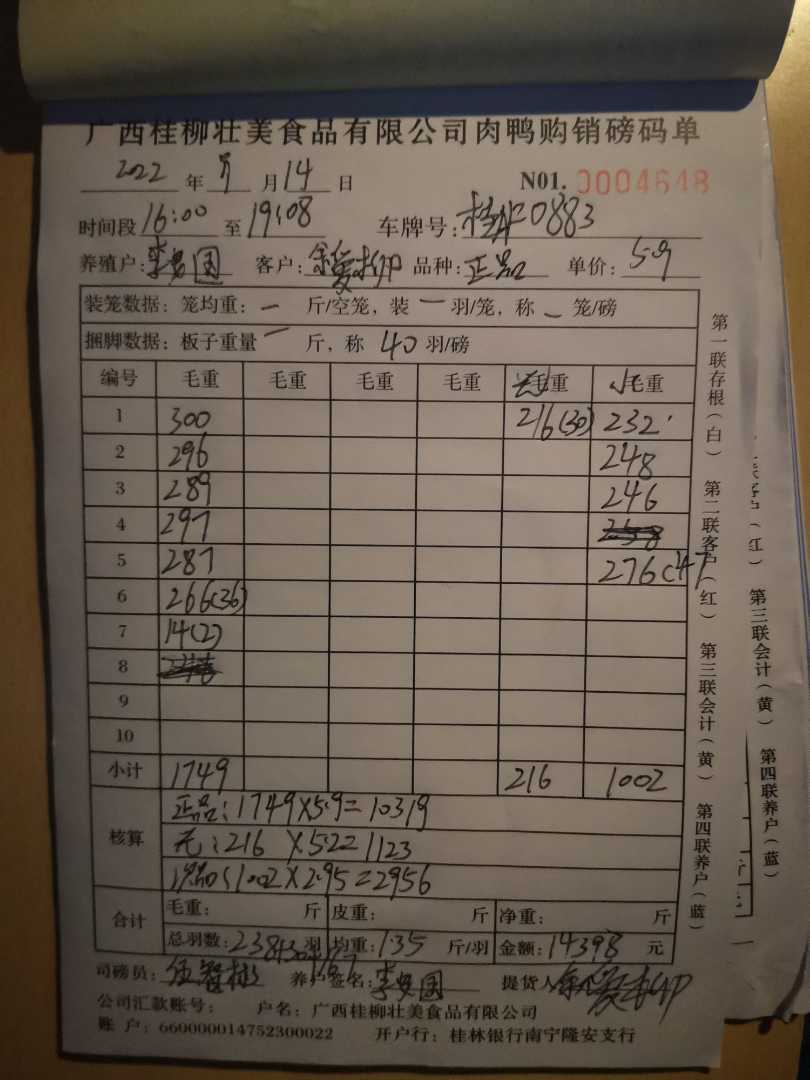 广西桂柳壮美食品有限公司肉鸭购销磅码单
2022 年 月 14 日 N01. 0004648
时间段 16:00 至 19:08 车牌号: 0883
养殖户: 李 国 客户: 品种: 正品 单价: 5.9
装笼数据: 笼均重: 一 斤/空笼, 装 一 羽/笼, 称 一 笼/磅
捆脚数据: 板子重量 一 斤, 称 40 羽/磅
编号 毛重 毛重 毛重 毛重 毛重 毛重
1 300 216(30) 232
2 296 248
3 289 246
4 297
5 287 276(47
6 266(36)
7 14(2)
8
9
10
小计 1749 216 1002
核算 正品: 1749×5.9=10319
216 ×5.2=1123
1002×2.95=2956
合计 毛重: 斤 皮重: 斤 净重: 斤
总羽数: 238+30 羽 均重: 斤/羽 金额: 14398 元
司磅员: 养户签名: 李 国 提货人
公司汇款账号: 户名: 广西桂柳壮美食品有限公司
账 户: 660000014752300022 开户行: 桂林银行南宁隆安支行
第一联存根(白) 第二联客户(红) 第三联会计(黄) 第四联养户(蓝)
联客户(红) 第三联会计(黄) 第四联养户(蓝)